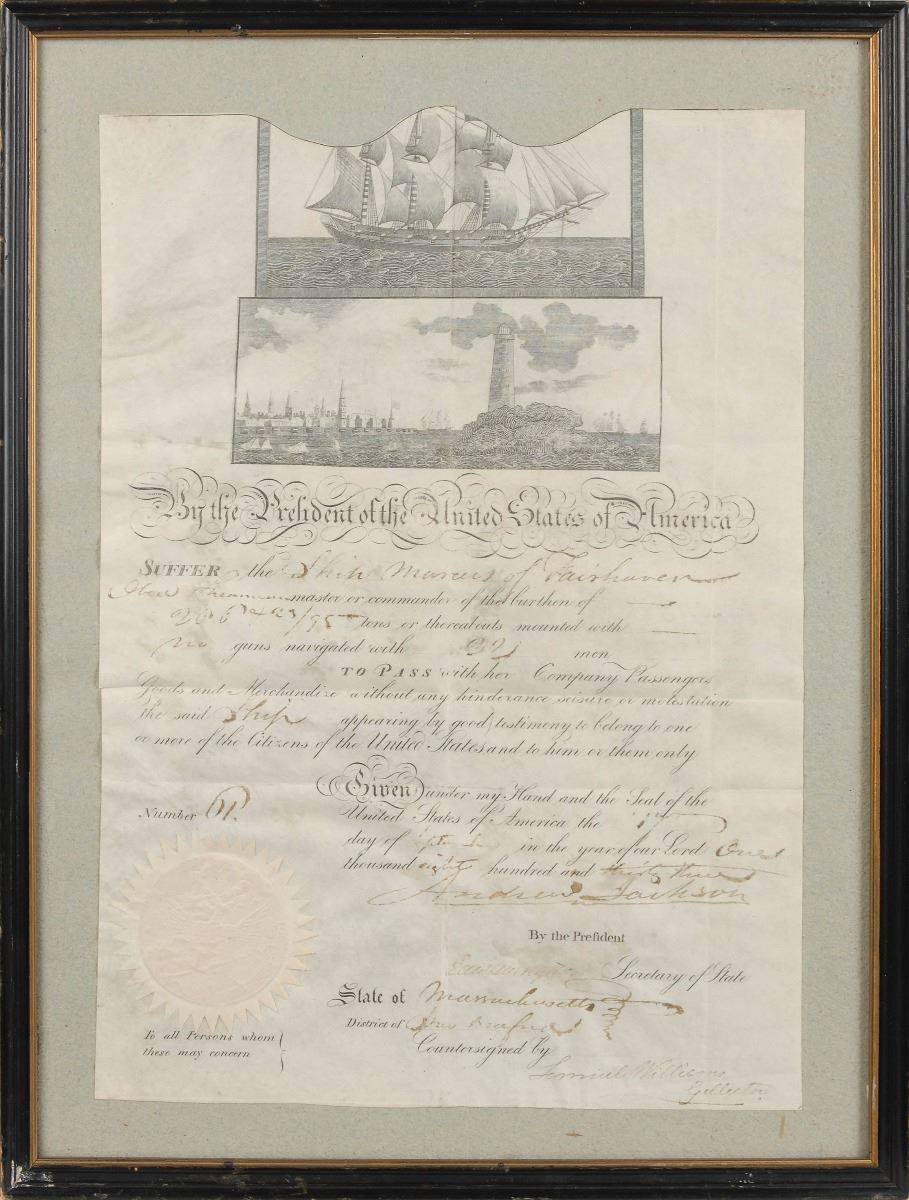 By the President of the United States of America
SUFFER the Ship Marcus of Fairhaven
master or commander of the burthen of
/95 tons or thereabouts mounted with
no guns navigated with men
TO PASS with her Company Passengers
Goods and Merchandize without any hinderance seisure or molestation
the said Ship appearing by good testimony to belong to one
or more of the Citizens of the United States and to him or them only
Given under my Hand and the Seal of the
United States of America the
day of in the year of our Lord One
thousand eight hundred and thirty three
Number 61.
Andrew Jackson
By the President
Secretary of State
State of Massachusetts
District of
Countersigned by
Lemuel Williams
Collector
To all Persons whom
these may concern